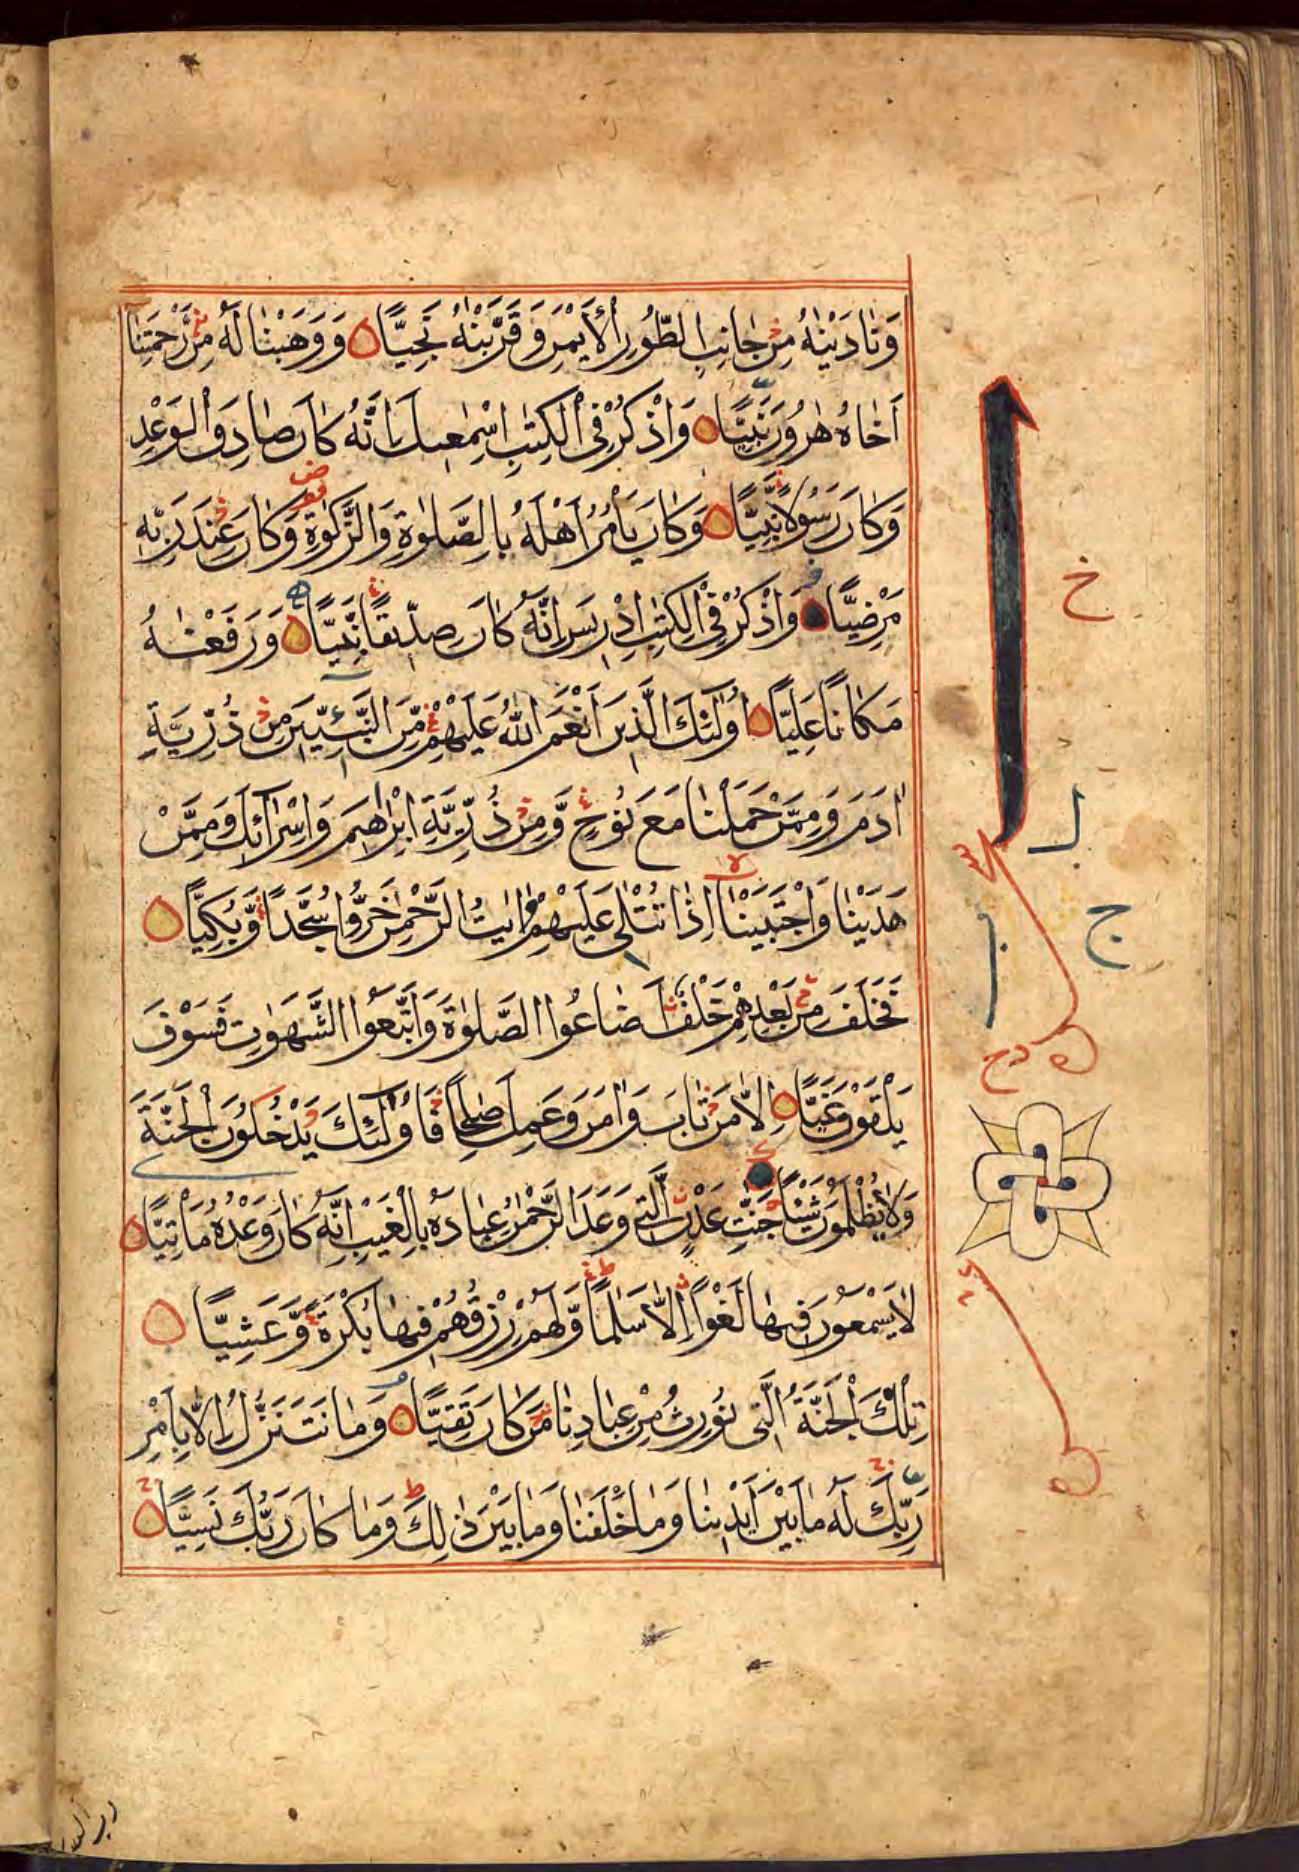 وَنَادَيْنٰهُ مِنْ جَانِبِ الطُّورِ الْاَيْمَنِ وَقَرَّبْنٰهُ نَجِيًّا وَوَهَبْنَا لَهُ مِنْ رَّحْمَتِنَا
اَخَاهُ هٰرُونَ نَبِيًّا وَاذْكُرْ فِي الْكِتٰبِ اِسْمٰعِيلَ اِنَّهُ كَانَ صَادِقَ الْوَعْدِ
وَكَانَ رَسُولًا نَّبِيًّا وَكَانَ يَاْمُرُ اَهْلَهُ بِالصَّلٰوةِ وَالزَّكٰوةِ وَكَانَ عِنْدَ رَبِّهِ
مَرْضِيًّا وَاذْكُرْ فِي الْكِتٰبِ اِدْرِيسَ اِنَّهُ كَانَ صِدِّيقًا نَّبِيًّا وَرَفَعْنٰهُ
مَكَانًا عَلِيًّا اُولٰٓئِكَ الَّذِينَ اَنْعَمَ اللّٰهُ عَلَيْهِمْ مِّنَ النَّبِيّٖنَ مِنْ ذُرِّيَّةِ
اٰدَمَ وَمِمَّنْ حَمَلْنَا مَعَ نُوحٍ وَّمِنْ ذُرِّيَّةِ اِبْرٰهِيمَ وَاِسْرَآئِلَ وَمِمَّنْ
هَدَيْنَا وَاجْتَبَيْنَا اِذَا تُتْلٰى عَلَيْهِمْ اٰيٰتُ الرَّحْمٰنِ خَرُّوا سُجَّدًا وَّبُكِيًّا
فَخَلَفَ مِنْ بَعْدِهِمْ خَلْفٌ اَضَاعُوا الصَّلٰوةَ وَاتَّبَعُوا الشَّهَوٰتِ فَسَوْفَ
يَلْقَوْنَ غَيًّا اِلَّا مَنْ تَابَ وَاٰمَنَ وَعَمِلَ صَالِحًا فَاُولٰٓئِكَ يَدْخُلُونَ الْجَنَّةَ
وَلَا يُظْلَمُونَ شَيْئًا جَنّٰتِ عَدْنٍ الَّتِي وَعَدَ الرَّحْمٰنُ عِبَادَهُ بِالْغَيْبِ اِنَّهُ كَانَ وَعْدُهُ مَاْتِيًّا
لَا يَسْمَعُونَ فِيهَا لَغْوًا اِلَّا سَلٰمًا وَّلَهُمْ رِزْقُهُمْ فِيهَا بُكْرَةً وَّعَشِيًّا
تِلْكَ الْجَنَّةُ الَّتِي نُورِثُ مِنْ عِبَادِنَا مَنْ كَانَ تَقِيًّا وَمَا نَتَنَزَّلُ اِلَّا بِاَمْرِ
رَبِّكَ لَهُ مَا بَيْنَ اَيْدِينَا وَمَا خَلْفَنَا وَمَا بَيْنَ ذٰلِكَ وَمَا كَانَ رَبُّكَ نَسِيًّا